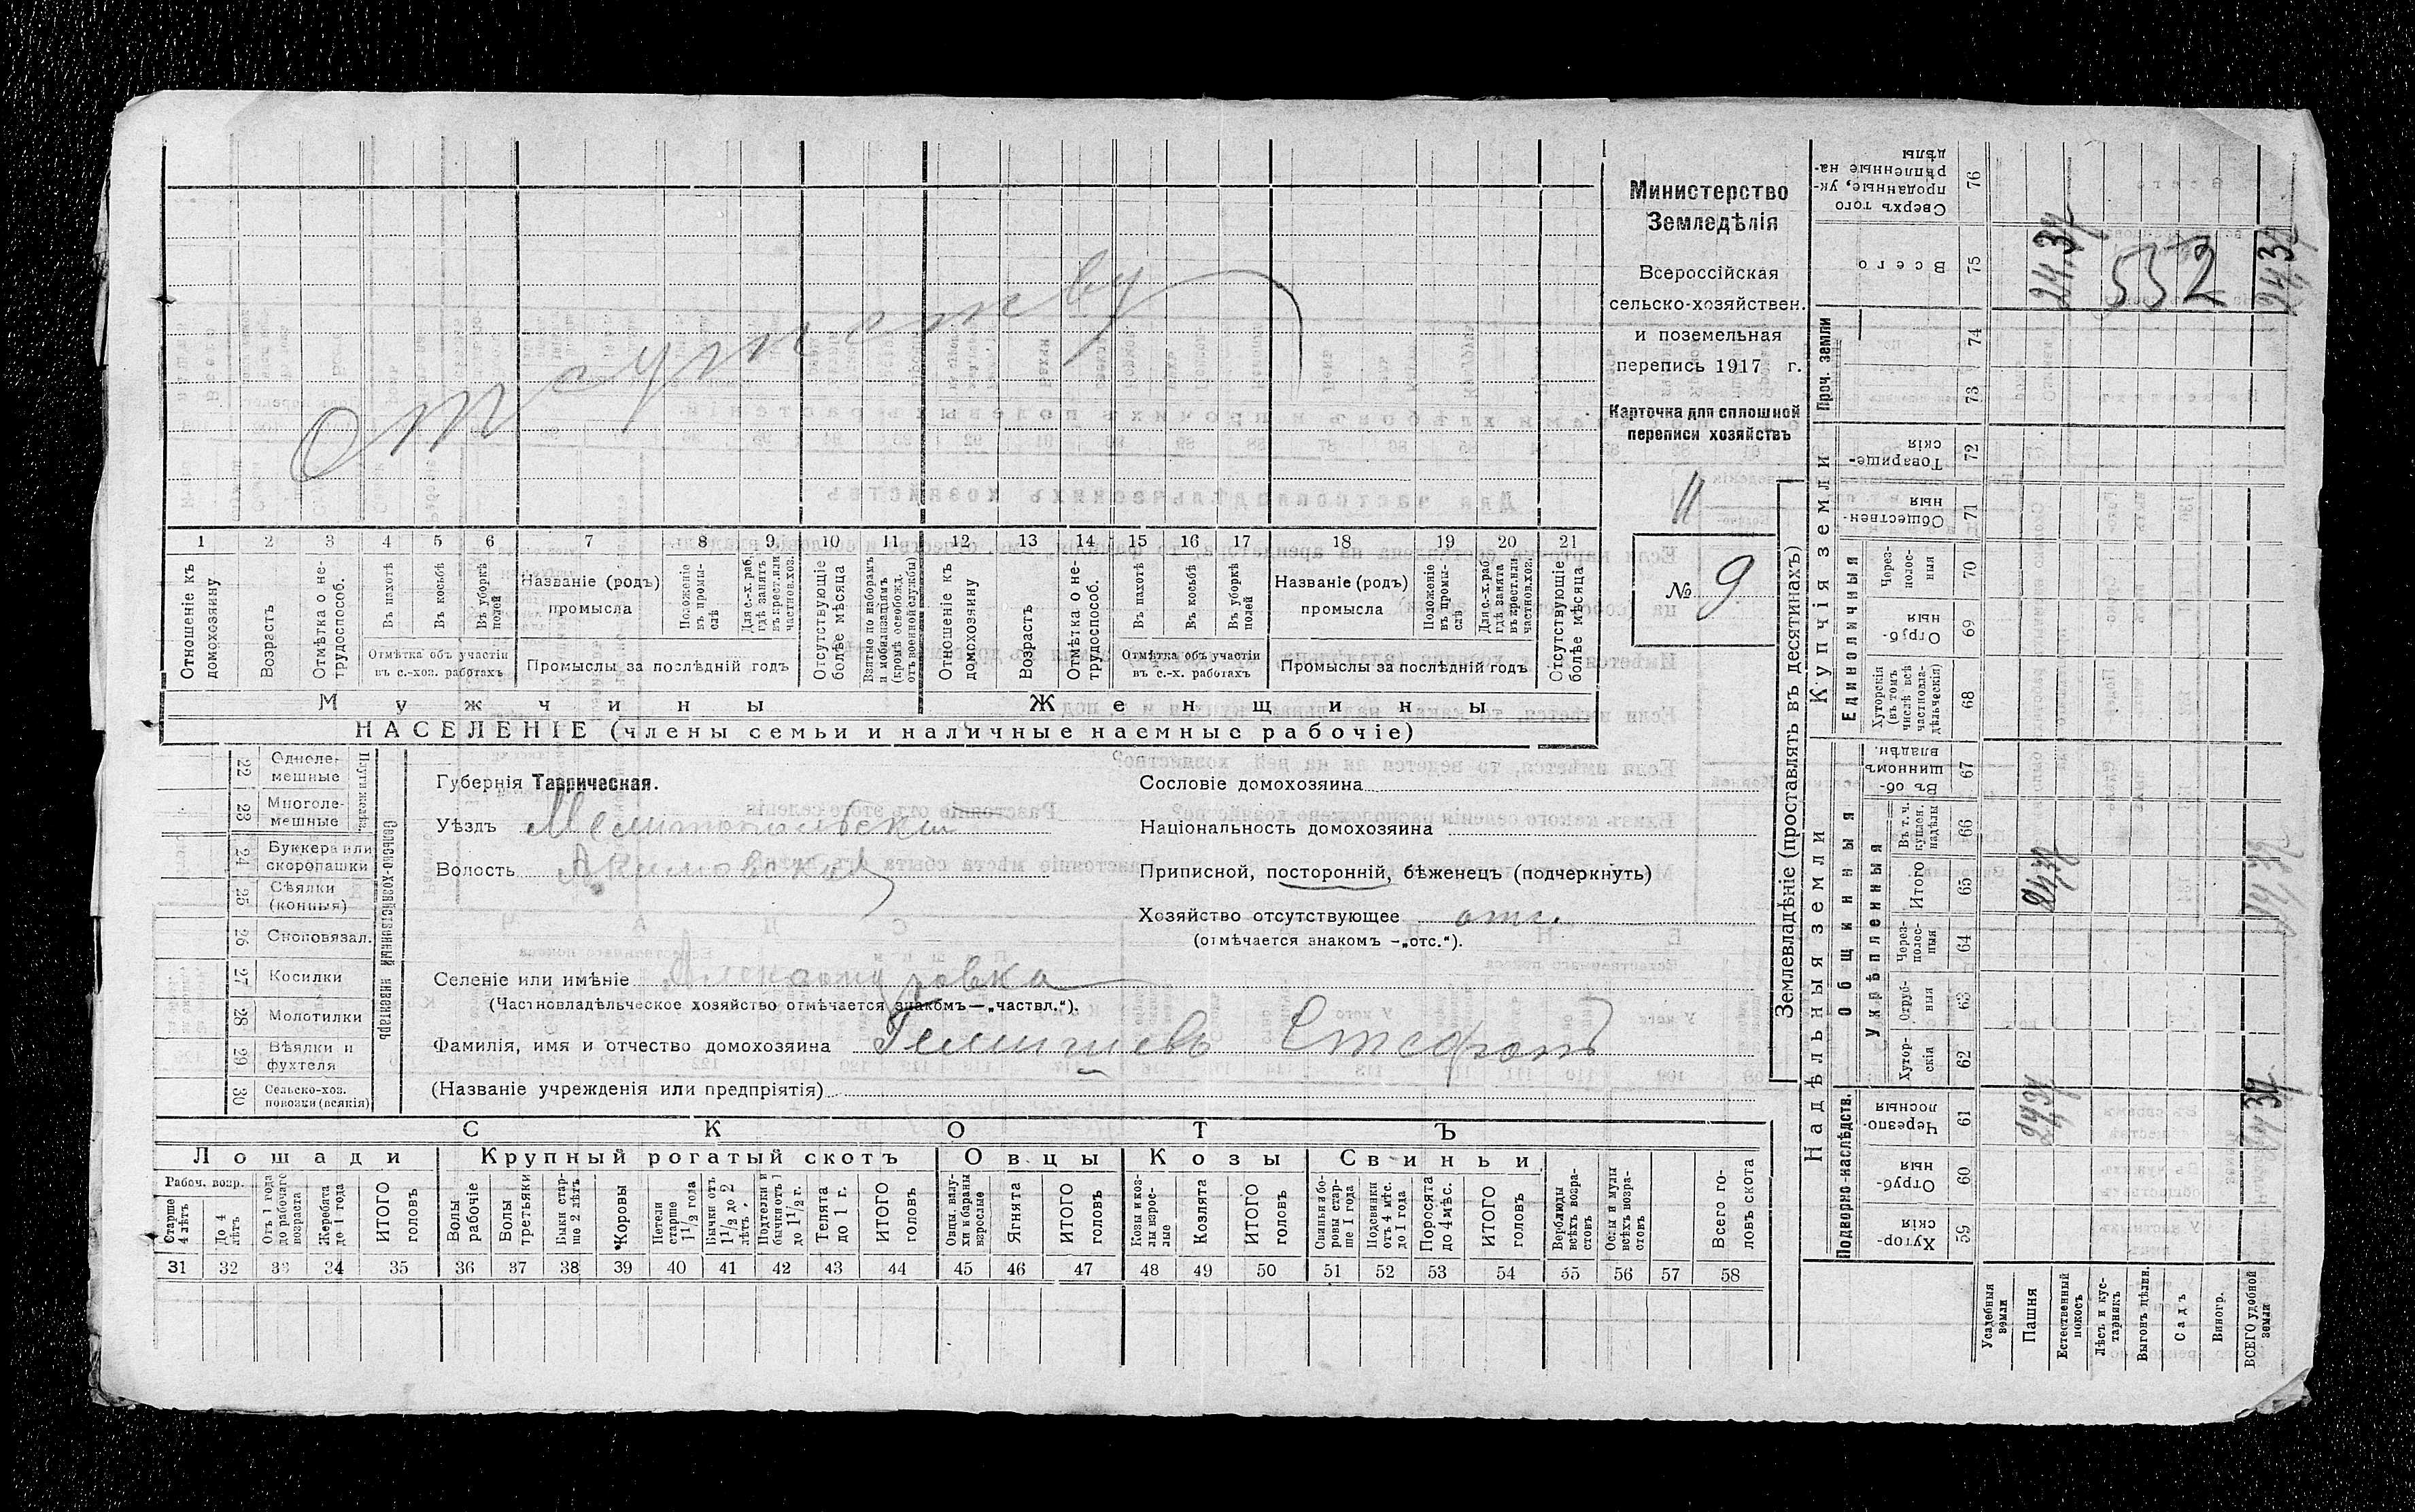 Отсутству
1 2 3 4 5 6 7 8 9 10 11 12 13 14 15 16 17 18 19 20 21
Отношеніе къ домохозяину
Возрастъ
Отмѣтка о не-трудоспособ.
Въ пахотѣ
Въ косьбѣ
Въ уборкѣ полей
Отмѣтка объ участіи
въ с.-хоз. работахъ
Названіе (родъ)
промысла
Положеніе въ промы-слѣ
Для с.-х. раб. гдѣ занятъ въ крест. или частнов. хоз.
Промыслы за послѣдній годъ
Отсутствующіе болѣе мѣсяца
Взятые по наборамъ и мобилизаціямъ (кромѣ освобожд. отъ военной службы)
Отношеніе къ домохозяину
Возрастъ
Отмѣтка о не-трудоспособ.
Въ пахотѣ
Въ косьбѣ
Въ уборкѣ полей
Отмѣтка объ участіи
въ с.-х. работахъ
Названіе (родъ)
промысла
Положеніе въ промы-слѣ
Для с.-х. раб. гдѣ занята въ крест. или частнов. хоз.
Промыслы за послѣдній годъ
Отсутствующіе болѣе мѣсяца
Мужчины
Женщины
НАСЕЛЕНІЕ (члены семьи и наличные наемные рабочіе)
Министерство
Земледѣлія
Всероссійская
сельско-хозяйствен.
и поземельная
перепись 1917 г.
Карточка для сплошной
переписи хозяйствъ
11
№ 9
22 Одноле-мешные
23 Многоле-мешные
24 Буккера или скоропашки
25 Сѣялки (конныя)
26 Сноповязал.
27 Косилки
28 Молотилки
29 Вѣялки и фухтеля
30 Сельско-хоз. повозки (всякія)
Сельско-хозяйственный инвентарь
Губернія Таврическая.
Уѣздъ Мелитопольскій
Волость Акимовская
Селеніе или имѣніе Александровка
(Частновладѣльческое хозяйство отмѣчается знакомъ—„частвл.“).
Фамилія, имя и отчество домохозяина Стефанъ
(Названіе учрежденія или предпріятія)
Сословіе домохозяина
Національность домохозяина
Приписной, посторонній, бѣженецъ (подчеркнуть)
Хозяйство отсутствующее отс.
(отмѣчается знакомъ —„отс.“).
СКОТЪ
Лошади
Крупный рогатый скотъ
Овцы
Козы
Свиньи
Рабоч. возр.
Старше 4 лѣтъ
До 4 лѣтъ
Отъ 1 года до рабочаго возраста
Жеребята до 1 года
ИТОГО головъ
Волы рабочіе
Волы третьяки
Быки стар-ше 2 лѣтъ
Коровы
Нетели старше 1 1/2 года
Бычки отъ 1 1/2 до 2 лѣтъ
Подтелки и бычки отъ 1 до 1 1/2 г.
Телята до 1 г.
ИТОГО головъ
Овцы, валу-хи и бараны взрослые
Ягнята
ИТОГО головъ
Козы и коз-лы взрос-лые
Козлята
ИТОГО головъ
Свиньи и бо-ровы стар-ше 1 года
Подсвинки отъ 4 мѣс. до 1 года
Поросята до 4 мѣс.
ИТОГО головъ
Верблюды всѣхъ возра-стовъ
Ослы и мулы всѣхъ возра-стовъ
Всего го-ловъ скота
31 32 33 34 35 36 37 38 39 40 41 42 43 44 45 46 47 48 49 50 51 52 53 54 55 56 57 58
Землевладѣніе (проставлять въ десятинахъ)
Надѣльныя земли
Купчія земли
Проч. земли
Подворно-наслѣдств.
Общинныя
Укрѣпленныя
Единоличныя
Сверхъ того проданные, ук-рѣпленные на-дѣлы 76
Всего 75
74
73
Товарище-скія 72
Обществен-ныя 71
Через-полос-ныя 70
Отруб-ныя 69
Хуторскія (въ томъ числѣ всѣ частновла-дѣльческія) 68
Въ об-щинномъ владѣн. 67
Въ т. ч. куплен. надѣлы 66
Итого 65
Через-полос-ныя 64
Отруб-ныя 63
Хутор-скія 62
Черезпо-лосныя 61
Отруб-ныя 60
Хутор-скія 59
24,37
552
24,37
24,37
24,37
24,37
24,37
Усадебныя земли
Пашня
Естественный покосъ
Лѣсъ и кус-тарникъ
Выгонъ цѣлин.
Садъ
Виногр.
ВСЕГО удобной земли